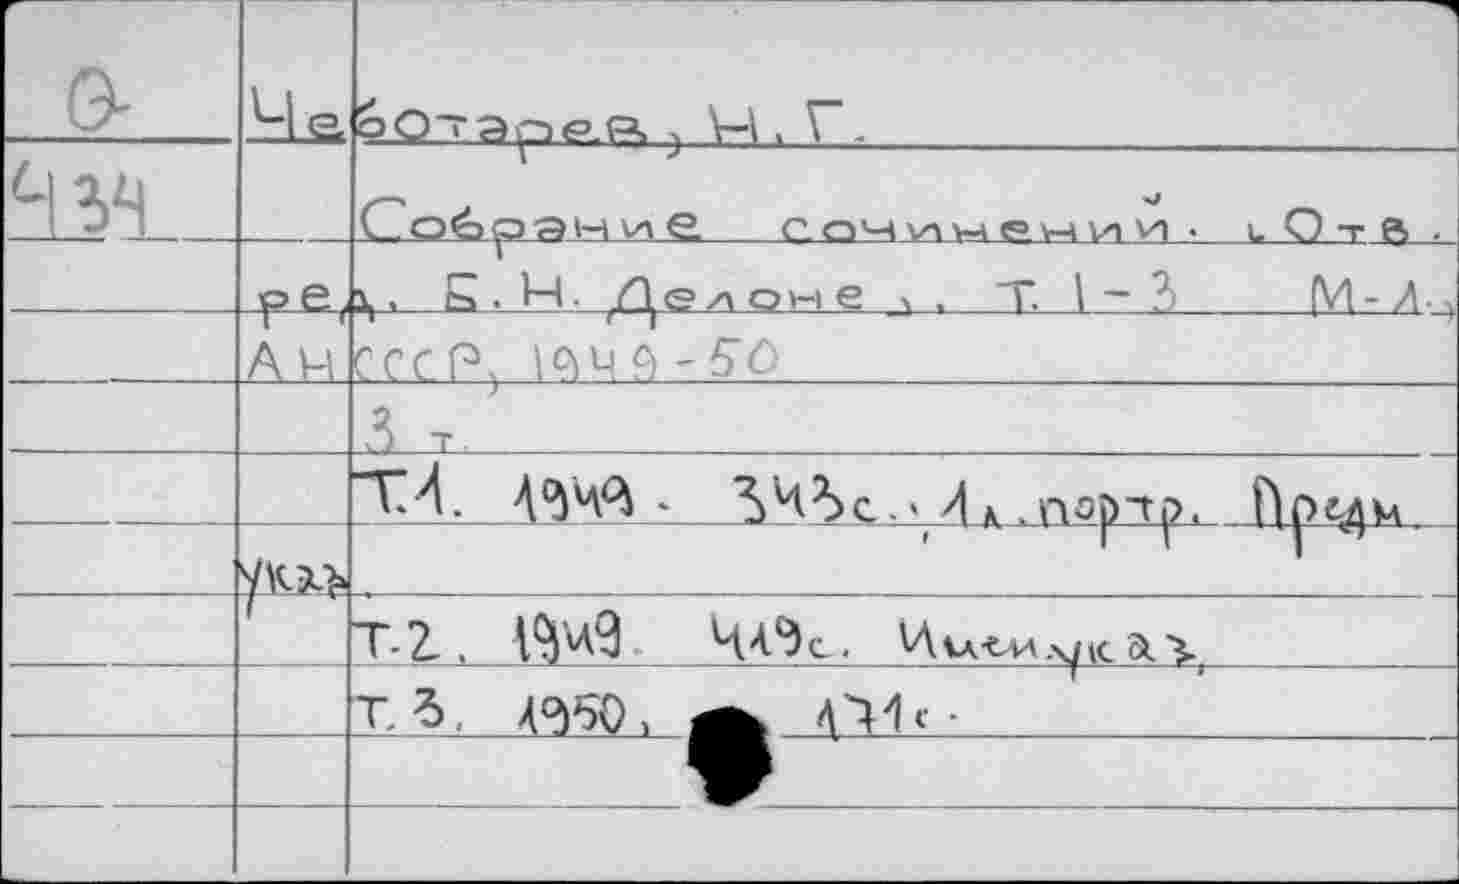 Ѳ
Ч34
Чеботарев, Н.Г.
Собрание сочинений. Отв.
ред. Б.Н. Делоне, Т. 1-3 М-Л.,
АН СССР, 1949-50
3 т.
Т.1. 1949. 343с., 1л. портр. Предм.
указ.
Т.2. 1949. 419с. Имен.указ.
Т.3. 1950, 171с.